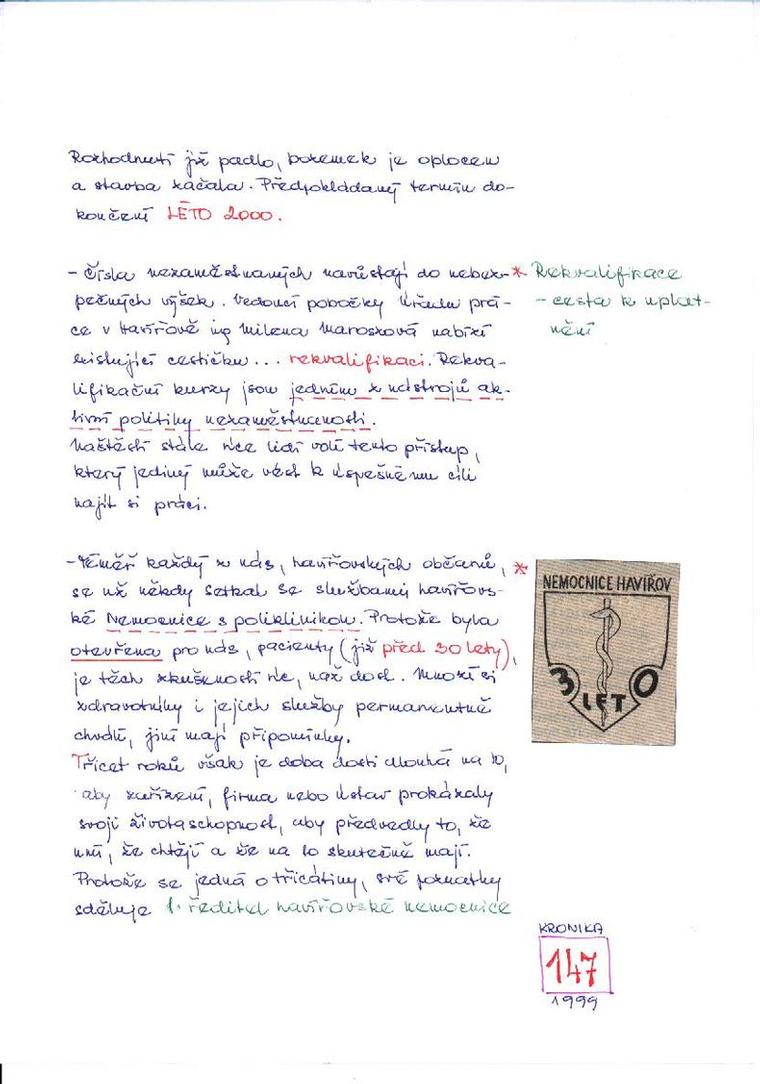 Rozhodnutí již padlo, pozemek je oplocen
a stavba začala. Předpokládaný termín do-
končení LÉTO 2000.
- Čísla nezaměstnaných narůstají do nebez- * Rekvalifikace
pečných výšek. Vedoucí pobočky Úřadu prá- - cesta k uplat-
ce v Havířově ing Milena Maroszová nabízí nění
existující cestičku... rekvalifikaci. Rekva-
lifikační kurzy jsou jedním z nástrojů ak-
tivní politiky nezaměstnanosti.
Naštěstí stále více lidí volí tento přístup,
který jediný může vést k úspěšnému cíli
najít si práci.
- Téměř každý z nás, havířovských občanů, *
se už někdy setkal se službami havířovs-
ké Nemocnice s poliklinikou. Protože byla
otevřena pro nás, pacienty (již před 30 lety),
je těch zkušeností víc, než dost. Mnozí si
zdravotníky i jejich služby permanentně
chválí, jiní mají připomínky.
Třicet roků však je doba dosti dlouhá na to,
aby zařízení, firma nebo ústav prokázaly
svoji životaschopnost, aby předvedly to, že
umí, že chtějí a že na to skutečně mají.
Protože se jedná o třicátiny, své poznatky
sděluje 1. ředitel havířovské nemocnice
NEMOCNICE HAVÍŘOV
30
LET
KRONIKA
147
1999